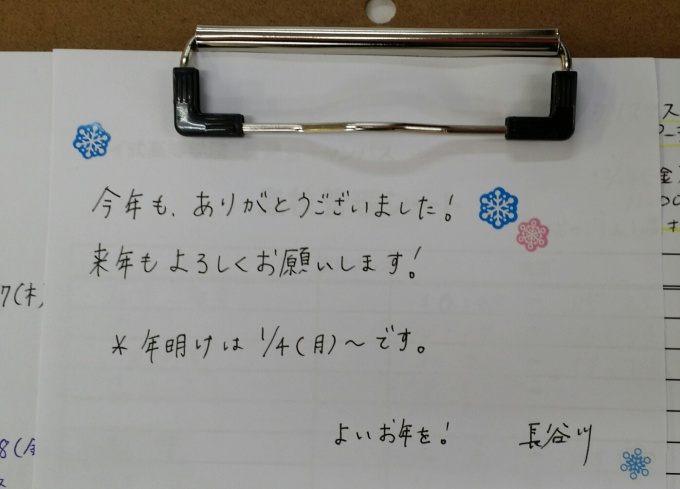 今年も、ありがとうございました!
来年もよろしくお願いします!
* 年明けは 1/4(月)〜です。
よいお年を! 長谷川
7(木)
8(金
ス
金)